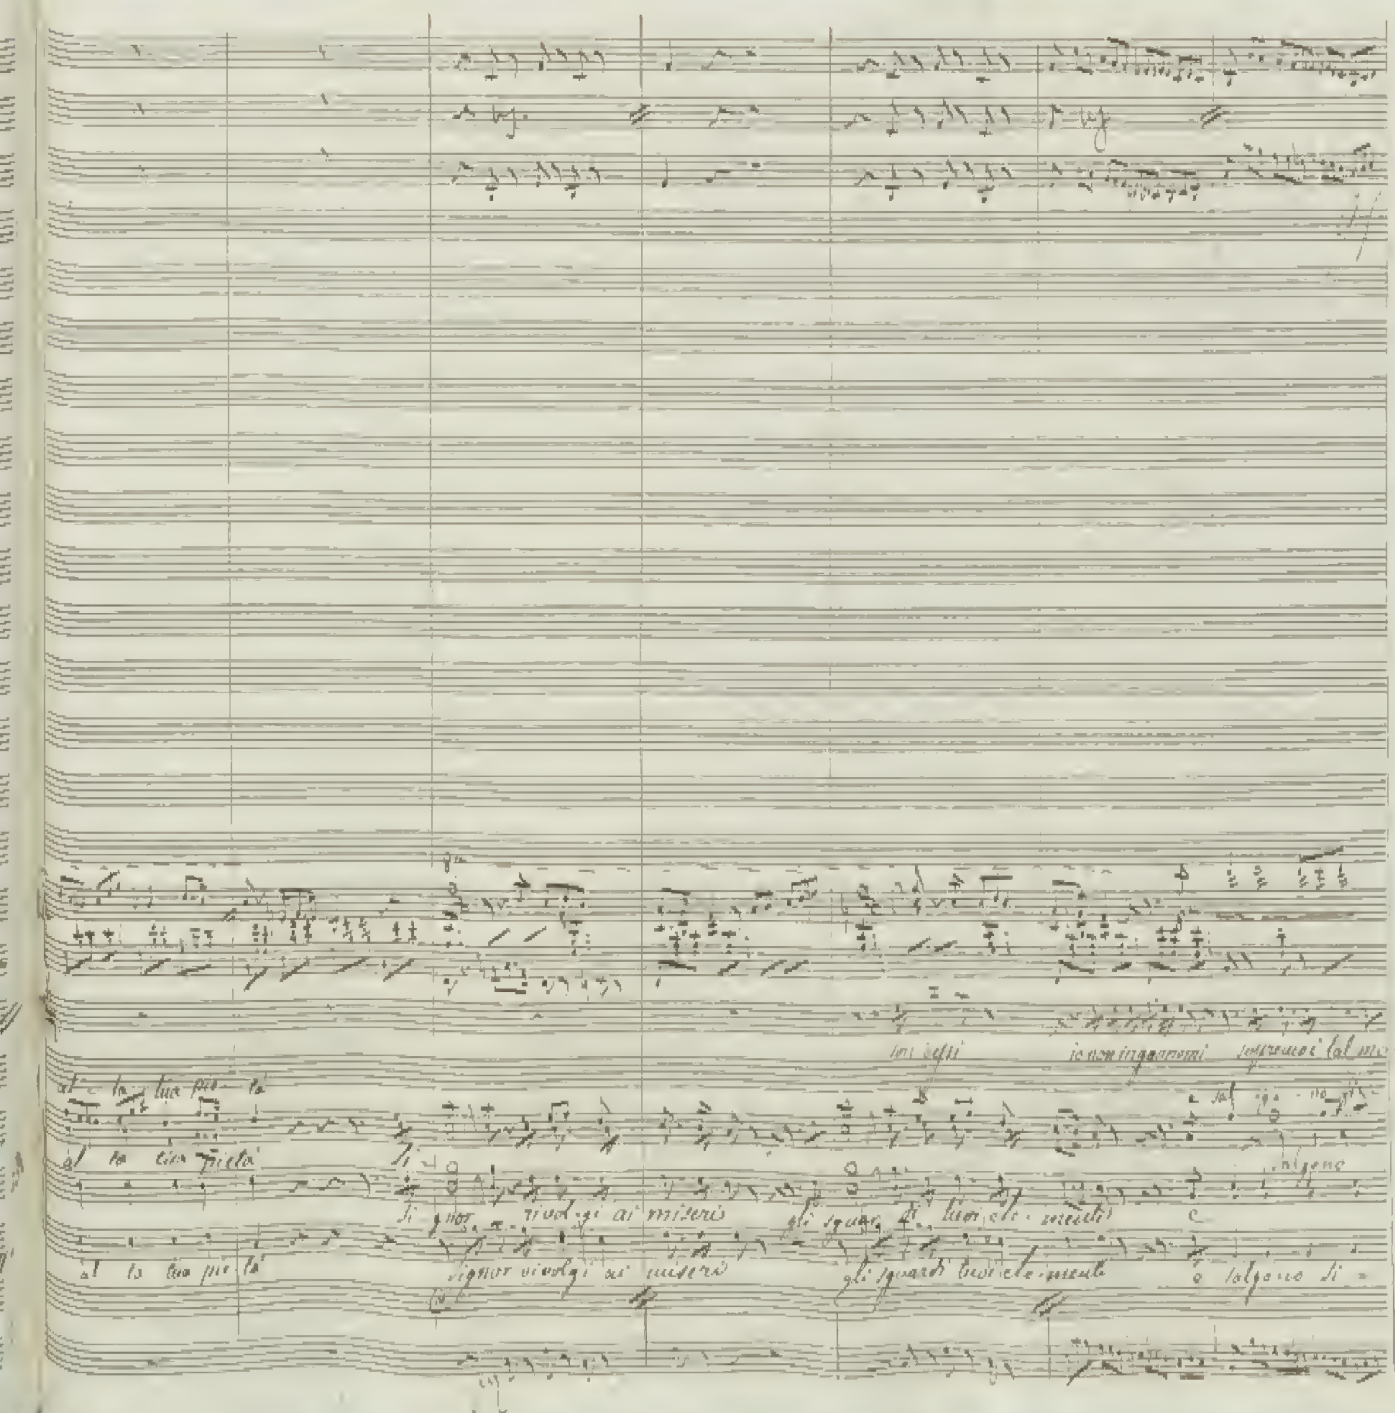 son dessi io non ingannomi
al - la tua pie - tà
sal - go - no
al la tua pietà
salgono
Si gnor rivol - gi ai miseri gli sguar di tuoi cle - menti e
al la tua pie tà signor rivolgi ai miseri gli sguardi tuoi cle - menti e salgono Si -